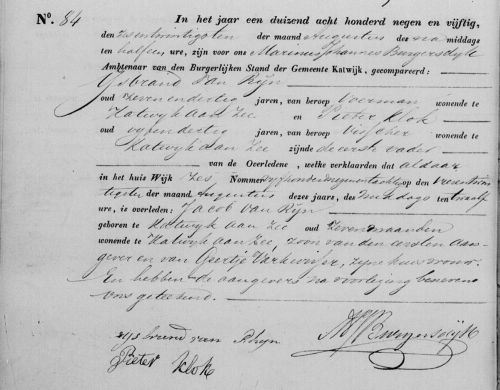 N°. 84 In het jaar een duizend acht honderd negen en vijftig,
den zes en twintigsten der maand Augustus des na middags
ten half een ure, zijn voor ons Marinus Johannes Burgersdijk
Ambtenaar van den Burgerlijken Stand der Gemeente Katwijk, gecompareerd:
Gijsbrand van Rijn
oud zeven en dertig jaren, van beroep voerman wonende te
Katwijk aan Zee en Pieter Klok
oud vijf en dertig jaren, van beroep visscher wonende te
Katwijk aan Zee zijnde de eerste vader
van de Overledene, welke verklaarden dat aldaar
in het huis Wijk Zes Nommer op den
der maand Augustus dezes jaars, des middags ten twaalf
ure, is overleden: Jacob van Rijn
geboren te Katwijk aan Zee oud zeven maanden
wonende te Katwijk aan Zee, zoon van den eersten aan-
gever en van Geertje zijne huisvrouw.
En hebben de aangevers na voorlezing benevens
ons geteekend.
gijsbrand van Rhijn
Pieter Klok
MJBurgersdijk